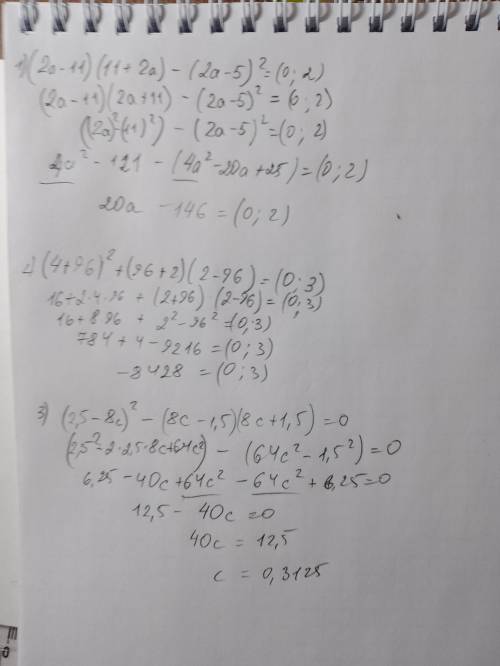 1) (2a-11)(11+2a) - (2a-5)² = (0; 2)
(2a-11)(2a+11) - (2a-5)² = (0; 2)
((2a)²(11)²) - (2a-5)² = (0; 2)
4a² - 121 - (4a² - 20a + 25) = (0; 2)
20a - 146 = (0; 2)
2) (4+96)² + (96+2)(2-96) = (0; 3)
16+2·4·96 + (2+96)(2-96) = (0; 3)
16+896 + 2² - 96² = (0; 3)
784 + 4 - 9216 = (0; 3)
-8428 = (0; 3)
3) (2,5-8c)² - (8c-1,5)(8c+1,5) = 0
(2,5² - 2·2,5·8c + 64c²) - (64c² - 1,5²) = 0
6,25 - 40c + 64c² - 64c² + 6,25 = 0
12,5 - 40c = 0
40c = 12,5
c = 0,3125